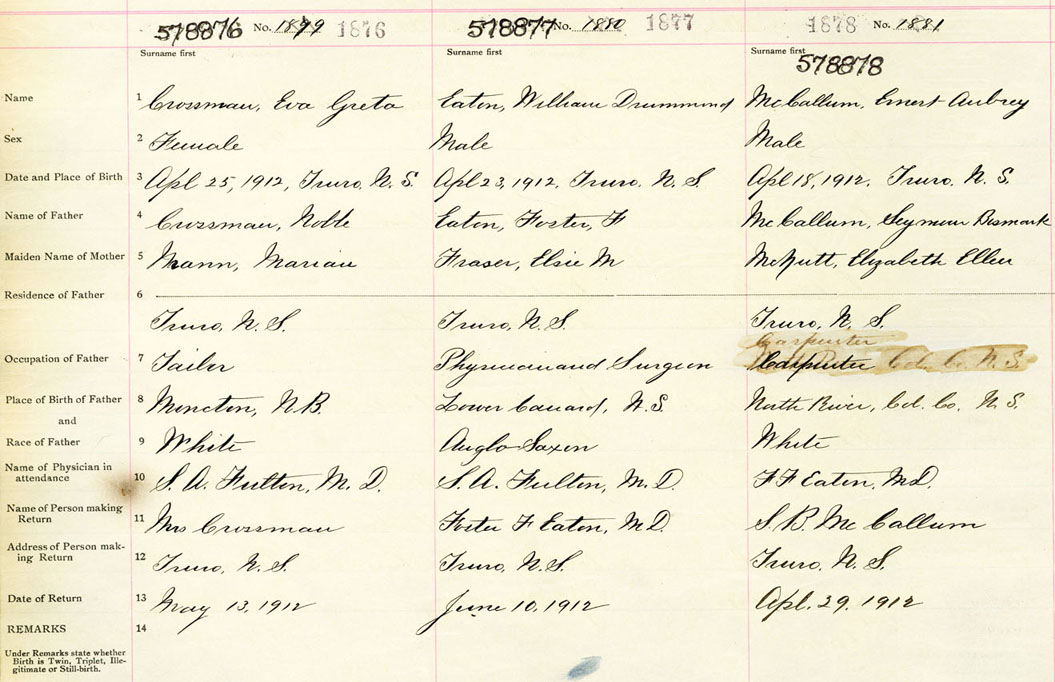 578876 No. 1879 1876 578877 No. 1880 1877 1878 No. 1881
Surname first Surname first Surname first
578878
Name 1 Crossman, Eva Greta Eaton, William Drummond McCallum, Ernest Aubrey
Sex 2 Female Male Male
Date and Place of Birth 3 Apl 25, 1912, Truro, N. S. Apl 23, 1912, Truro. N. S. Apl 18, 1912. Truro, N. S.
Name of Father 4 Crossman, Noble Eaton, Foster, F McCallum, Seymour Bismark
Maiden Name of Mother 5 Mann, Marian Fraser, Elsie M McNutt, Elizabeth Ellen
Residence of Father 6
Truro, N. S. Truro, N. S. Truro, N. S.
Carpenter
Occupation of Father 7 Tailor Physician and Surgeon Carpenter Col. Co. N. S.
Place of Birth of Father 8 Moncton, N. B. Lower Canard, N. S. North River, Col. Co. N. S.
and
Race of Father 9 White Anglo Saxon White
Name of Physician in
attendance 10 S. A. Fulton, M. D. S. A. Fulton, M. D. F F Eaton, M.D.
Name of Person making
Return 11 Mrs Crossman Foster F Eaton, M D. S. B. McCallum
Address of Person mak-
ing Return 12 Truro, N. S. Truro, N. S. Truro, N. S.
Date of Return 13 May 13, 1912 June 10, 1912 Apl. 29, 1912
REMARKS 14
Under Remarks state whether
Birth is Twin, Triplet, Ille-
gitimate or Still-birth.